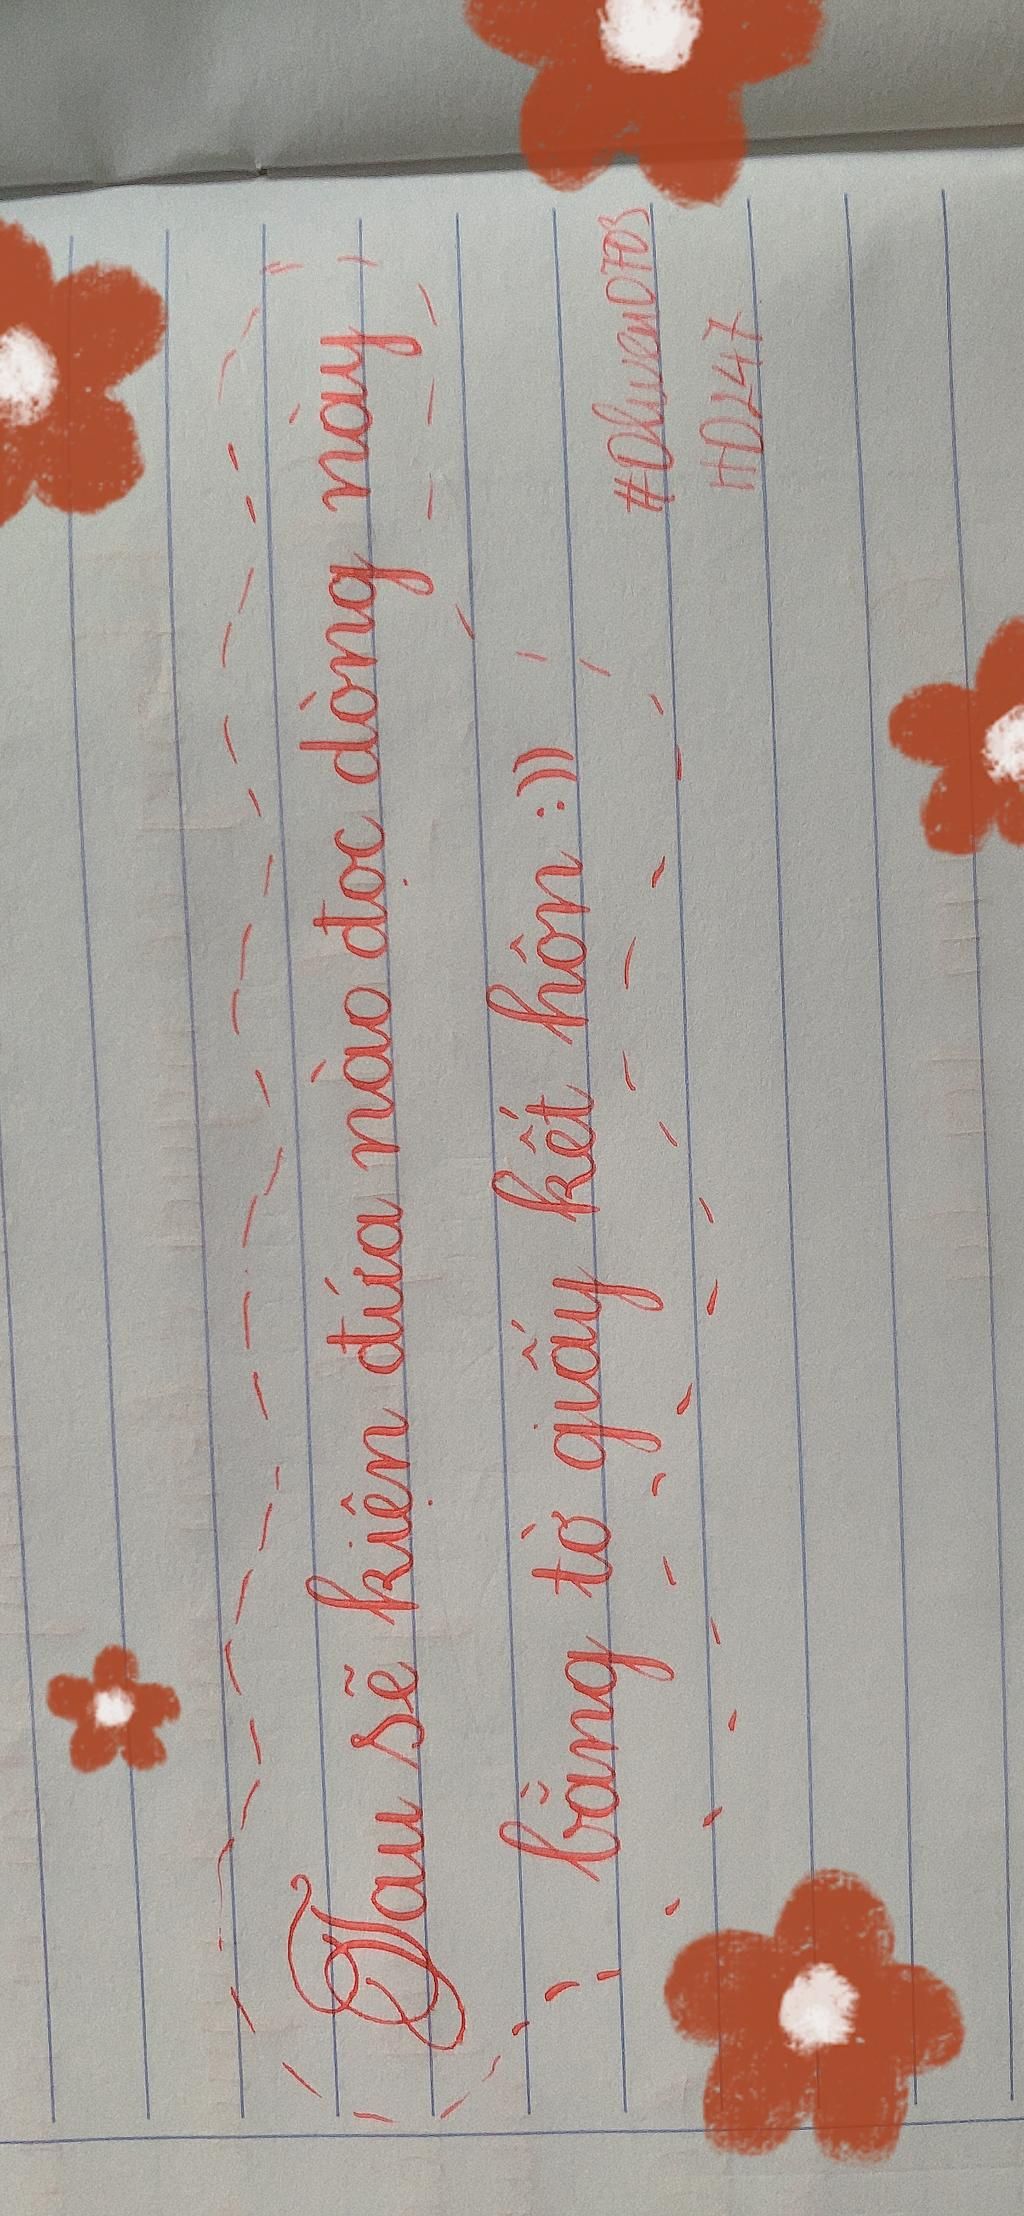 Tau sẽ kiện đứa nào đọc dòng này
bằng tờ giấy kết hôn :))
HD247